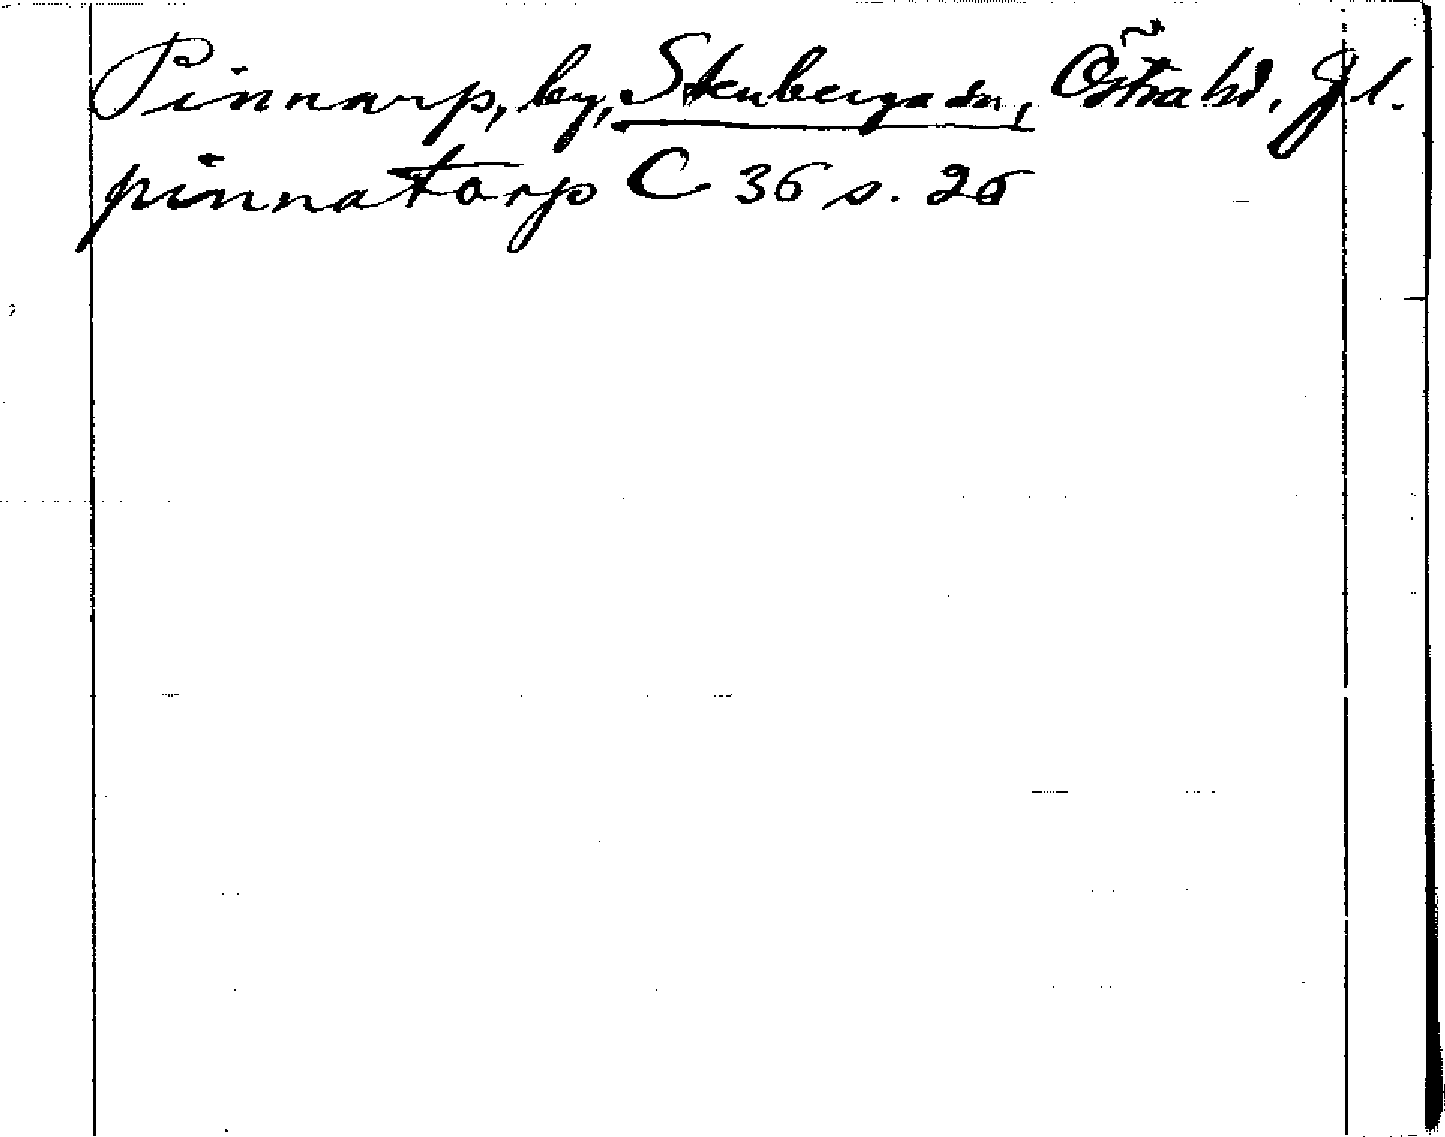 Pinnarp, by, Stenberga sn, Östra hd, Jl.
pinnatorp C 36 s. 26